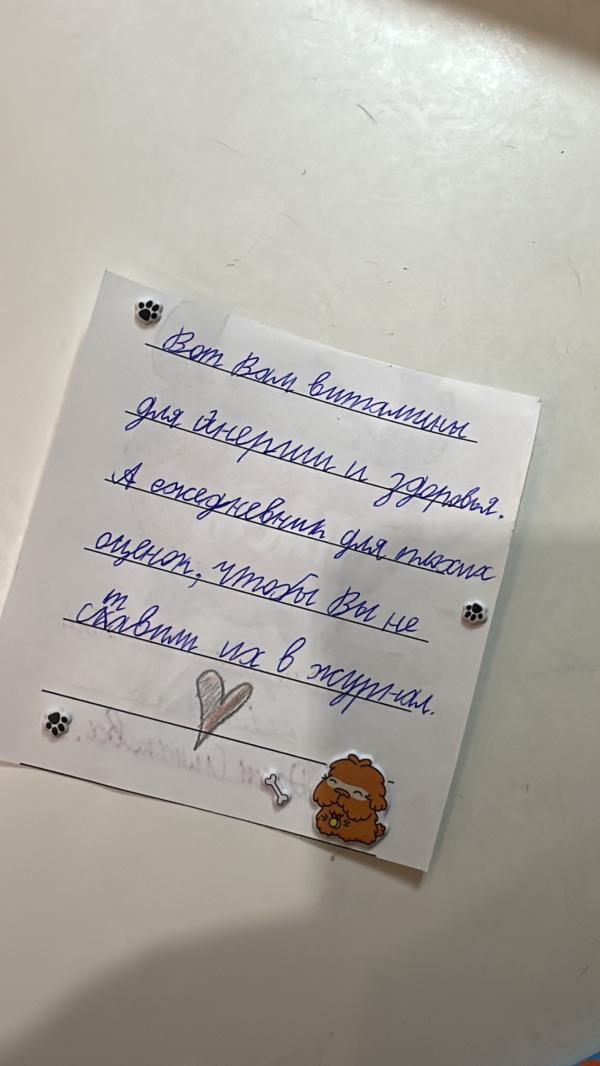 Вот Вам витамины
для энергии и здоровья.
А ежедневник для плохих
оценок, чтобы Вы не
ставили их в журнал.